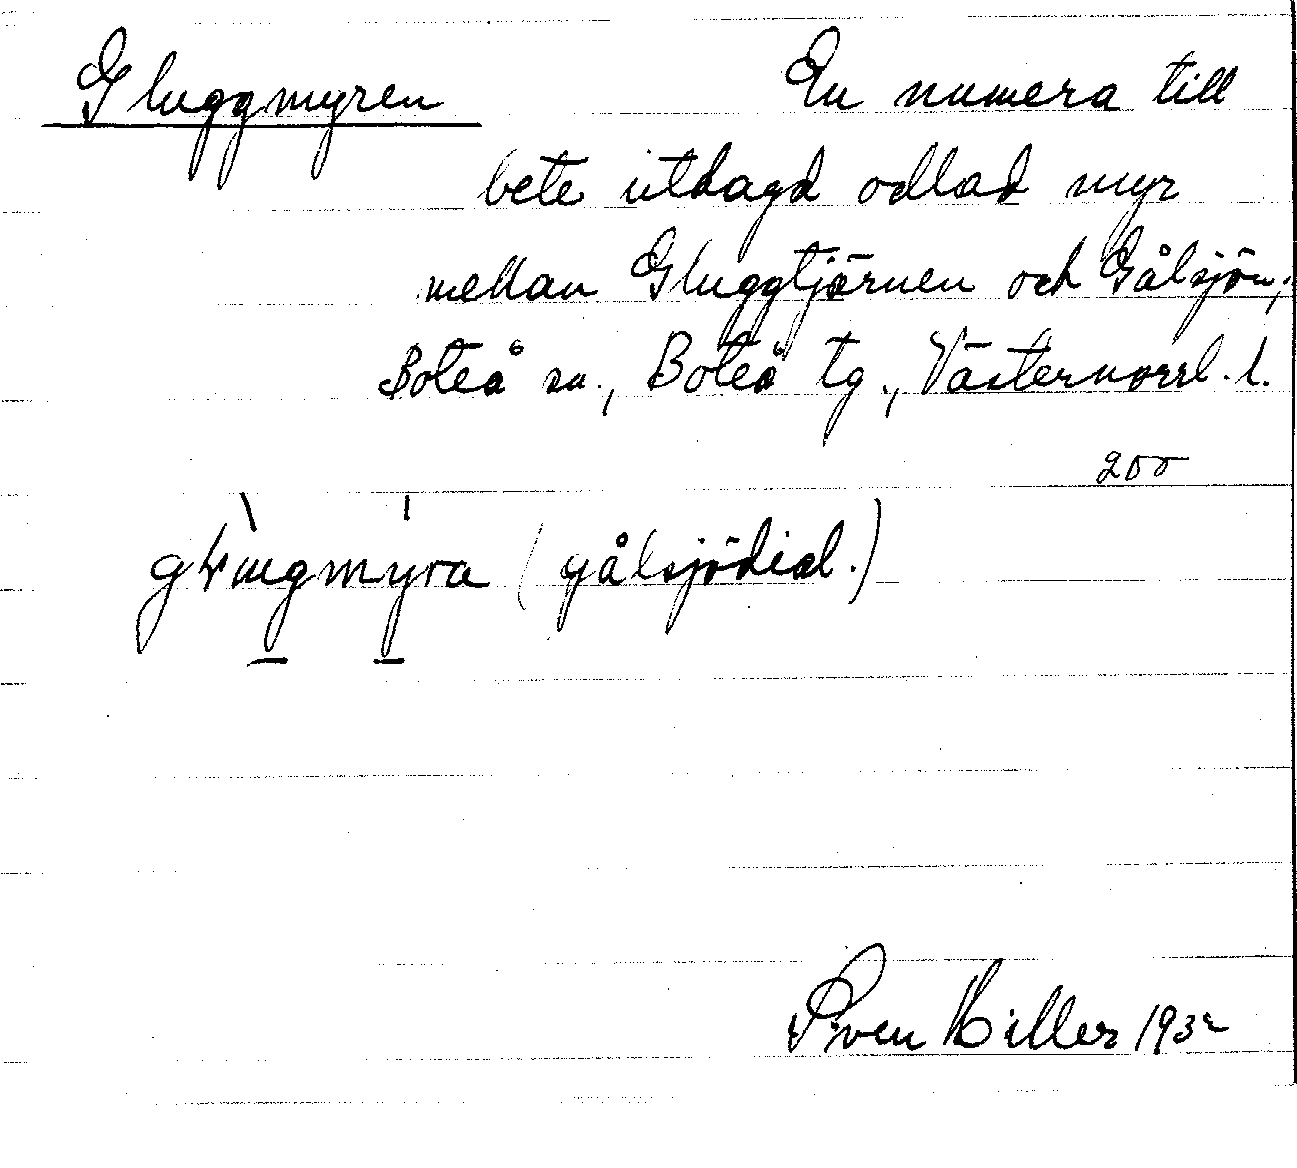 Gluggmyren En numera till
bete utlagd odlad myr
mellan Gluggtjärnen och Gålsjön,
Boteå sn., Boteå tg., Västernorrl. l.
200
(gålsjödial.)
Sven Hiller 1932